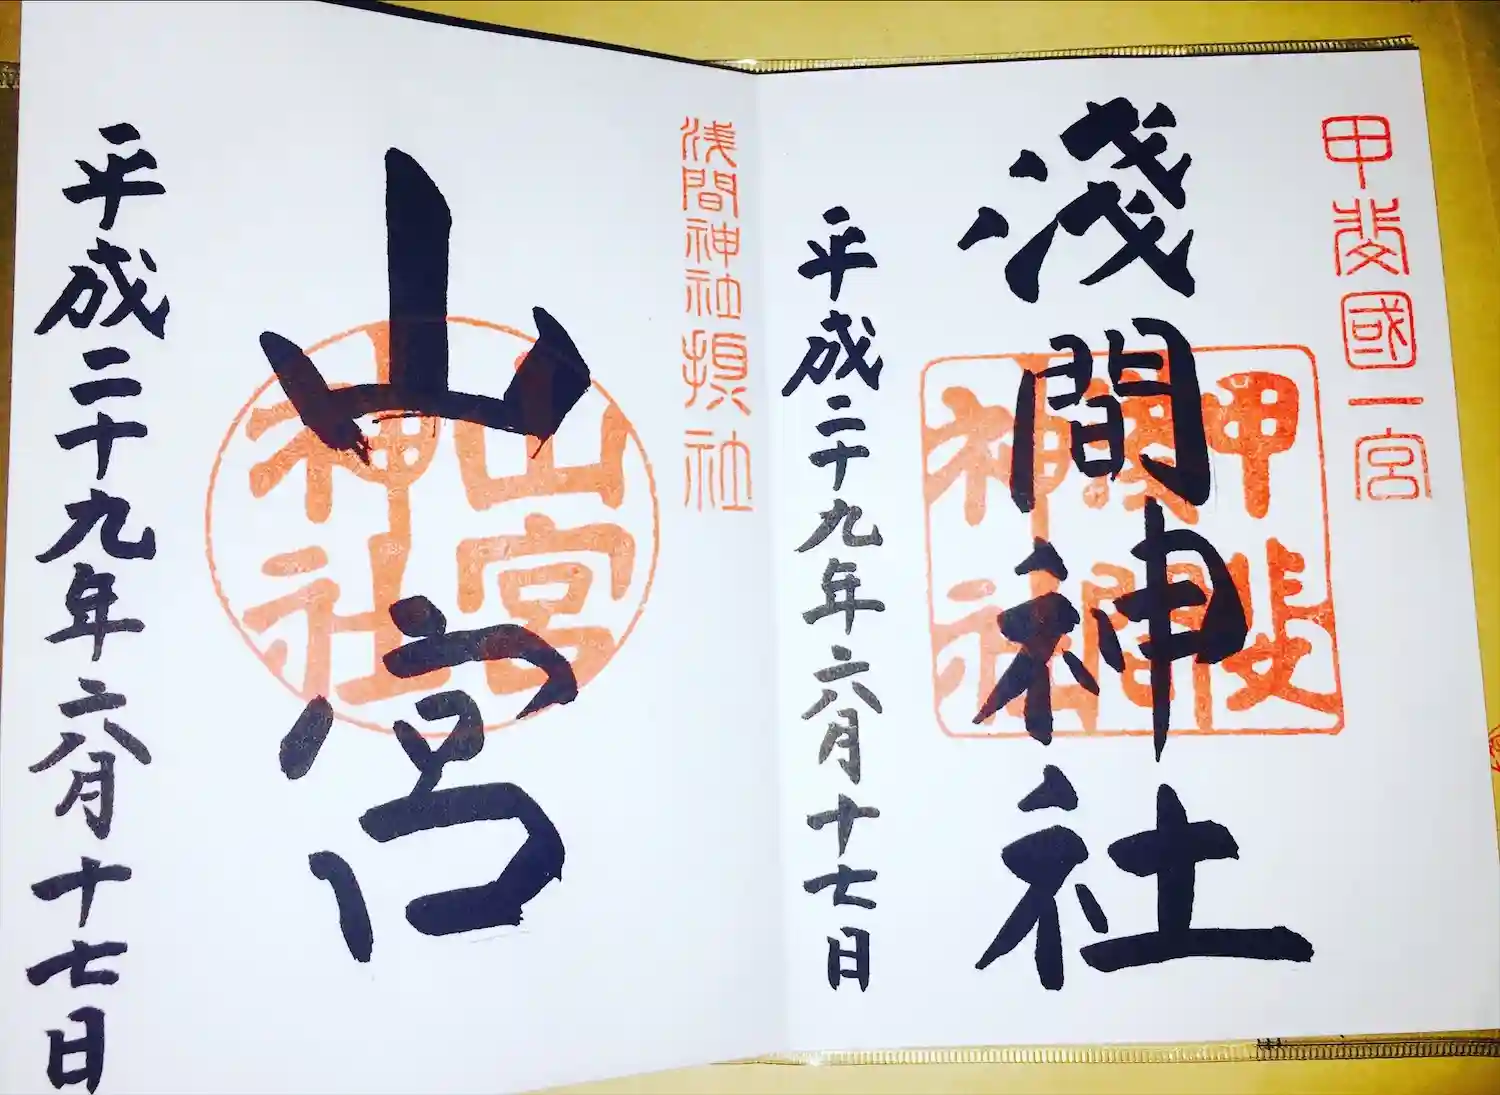 甲斐國一宮
淺間神社
甲斐
淺間
神社
平成二十九年六月十七日
浅間神社摂社
山宮
山宮
神社
平成二十九年六月十七日